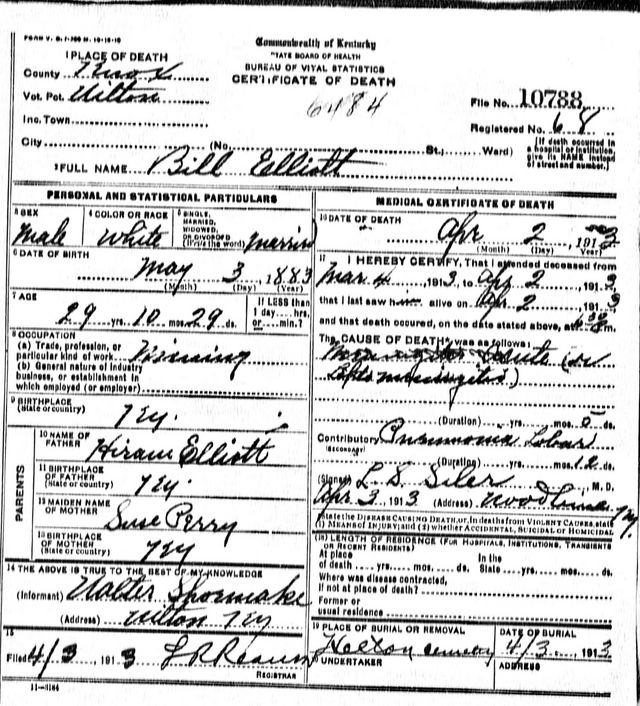 FORM V. S. 1-
Commonwealth of Kentucky
STATE BOARD OF HEALTH
BUREAU OF VITAL STATISTICS
CERTIFICATE OF DEATH
1 PLACE OF DEATH
County Knox
Vot. Pct. Wilton
Inc. Town
City (No. St.; Ward)
6484
File No. 10788
Registered No. 68
[If death occurred in a hospital or institution, give its NAME instead of street and number.]
2 FULL NAME Bill Elliott
PERSONAL AND STATISTICAL PARTICULARS
3 SEX
Male
4 COLOR OR RACE
White
5 SINGLE, MARRIED, WIDOWED, OR DIVORCED (Write the word) Married
6 DATE OF BIRTH
May 3, 1883
(Month) (Day) (Year)
7 AGE
29 yrs. 10 mos. 29 ds.
If LESS than 1 day....hrs. or....min.?
8 OCCUPATION
(a) Trade, profession, or
particular kind of work Mining
(b) General nature of industry
business, or establishment in
which employed (or employer)
9 BIRTHPLACE
(State or country) Ky.
PARENTS
10 NAME OF FATHER Hiram Elliott
11 BIRTHPLACE OF FATHER (State or country) Ky.
12 MAIDEN NAME OF MOTHER Suse Perry
13 BIRTHPLACE OF MOTHER (State or country) Ky
14 THE ABOVE IS TRUE TO THE BEST OF MY KNOWLEDGE
(Informant) Walter Shoemake
(Address) Wilton Ky
15
Filed 4/3 1913
REGISTRAR
11-3184
MEDICAL CERTIFICATE OF DEATH
16 DATE OF DEATH
Apr 2, 1913
(Month) (Day) (Year)
17 I HEREBY CERTIFY, That I attended deceased from
Mar 4 1913, to Apr 2 1913
that I last saw h alive on Apr 2 1913
and that death occured, on the date stated above, at m.
The CAUSE OF DEATH* was as follows:
Acute
meningitis)
(Duration) yrs. mos. ds.
Contributory Pneumonia Lobar
(SECONDARY)
(Duration) yrs. mos. 12 ds.
(Signed) L. S. Siler, M. D.
Apr 3 1913 (Address)
*State the DISEASE CAUSING DEATH, or, in deaths from VIOLENT CAUSES, state
(1) MEANS OF INJURY; and (2) whether ACCIDENTAL, SUICIDAL OR HOMICIDAL
18 LENGTH OF RESIDENCE (FOR HOSPITALS, INSTITUTIONS, TRANSIENTS
OR RECENT RESIDENTS)
At place In the
of death yrs. mos. ds. State yrs. mos. ds.
Where was disease contracted,
if not at place of death?
Former or
usual residence
19 PLACE OF BURIAL OR REMOVAL
Helton Cemetery
DATE OF BURIAL
4/3, 1913
UNDERTAKER
ADDRESS